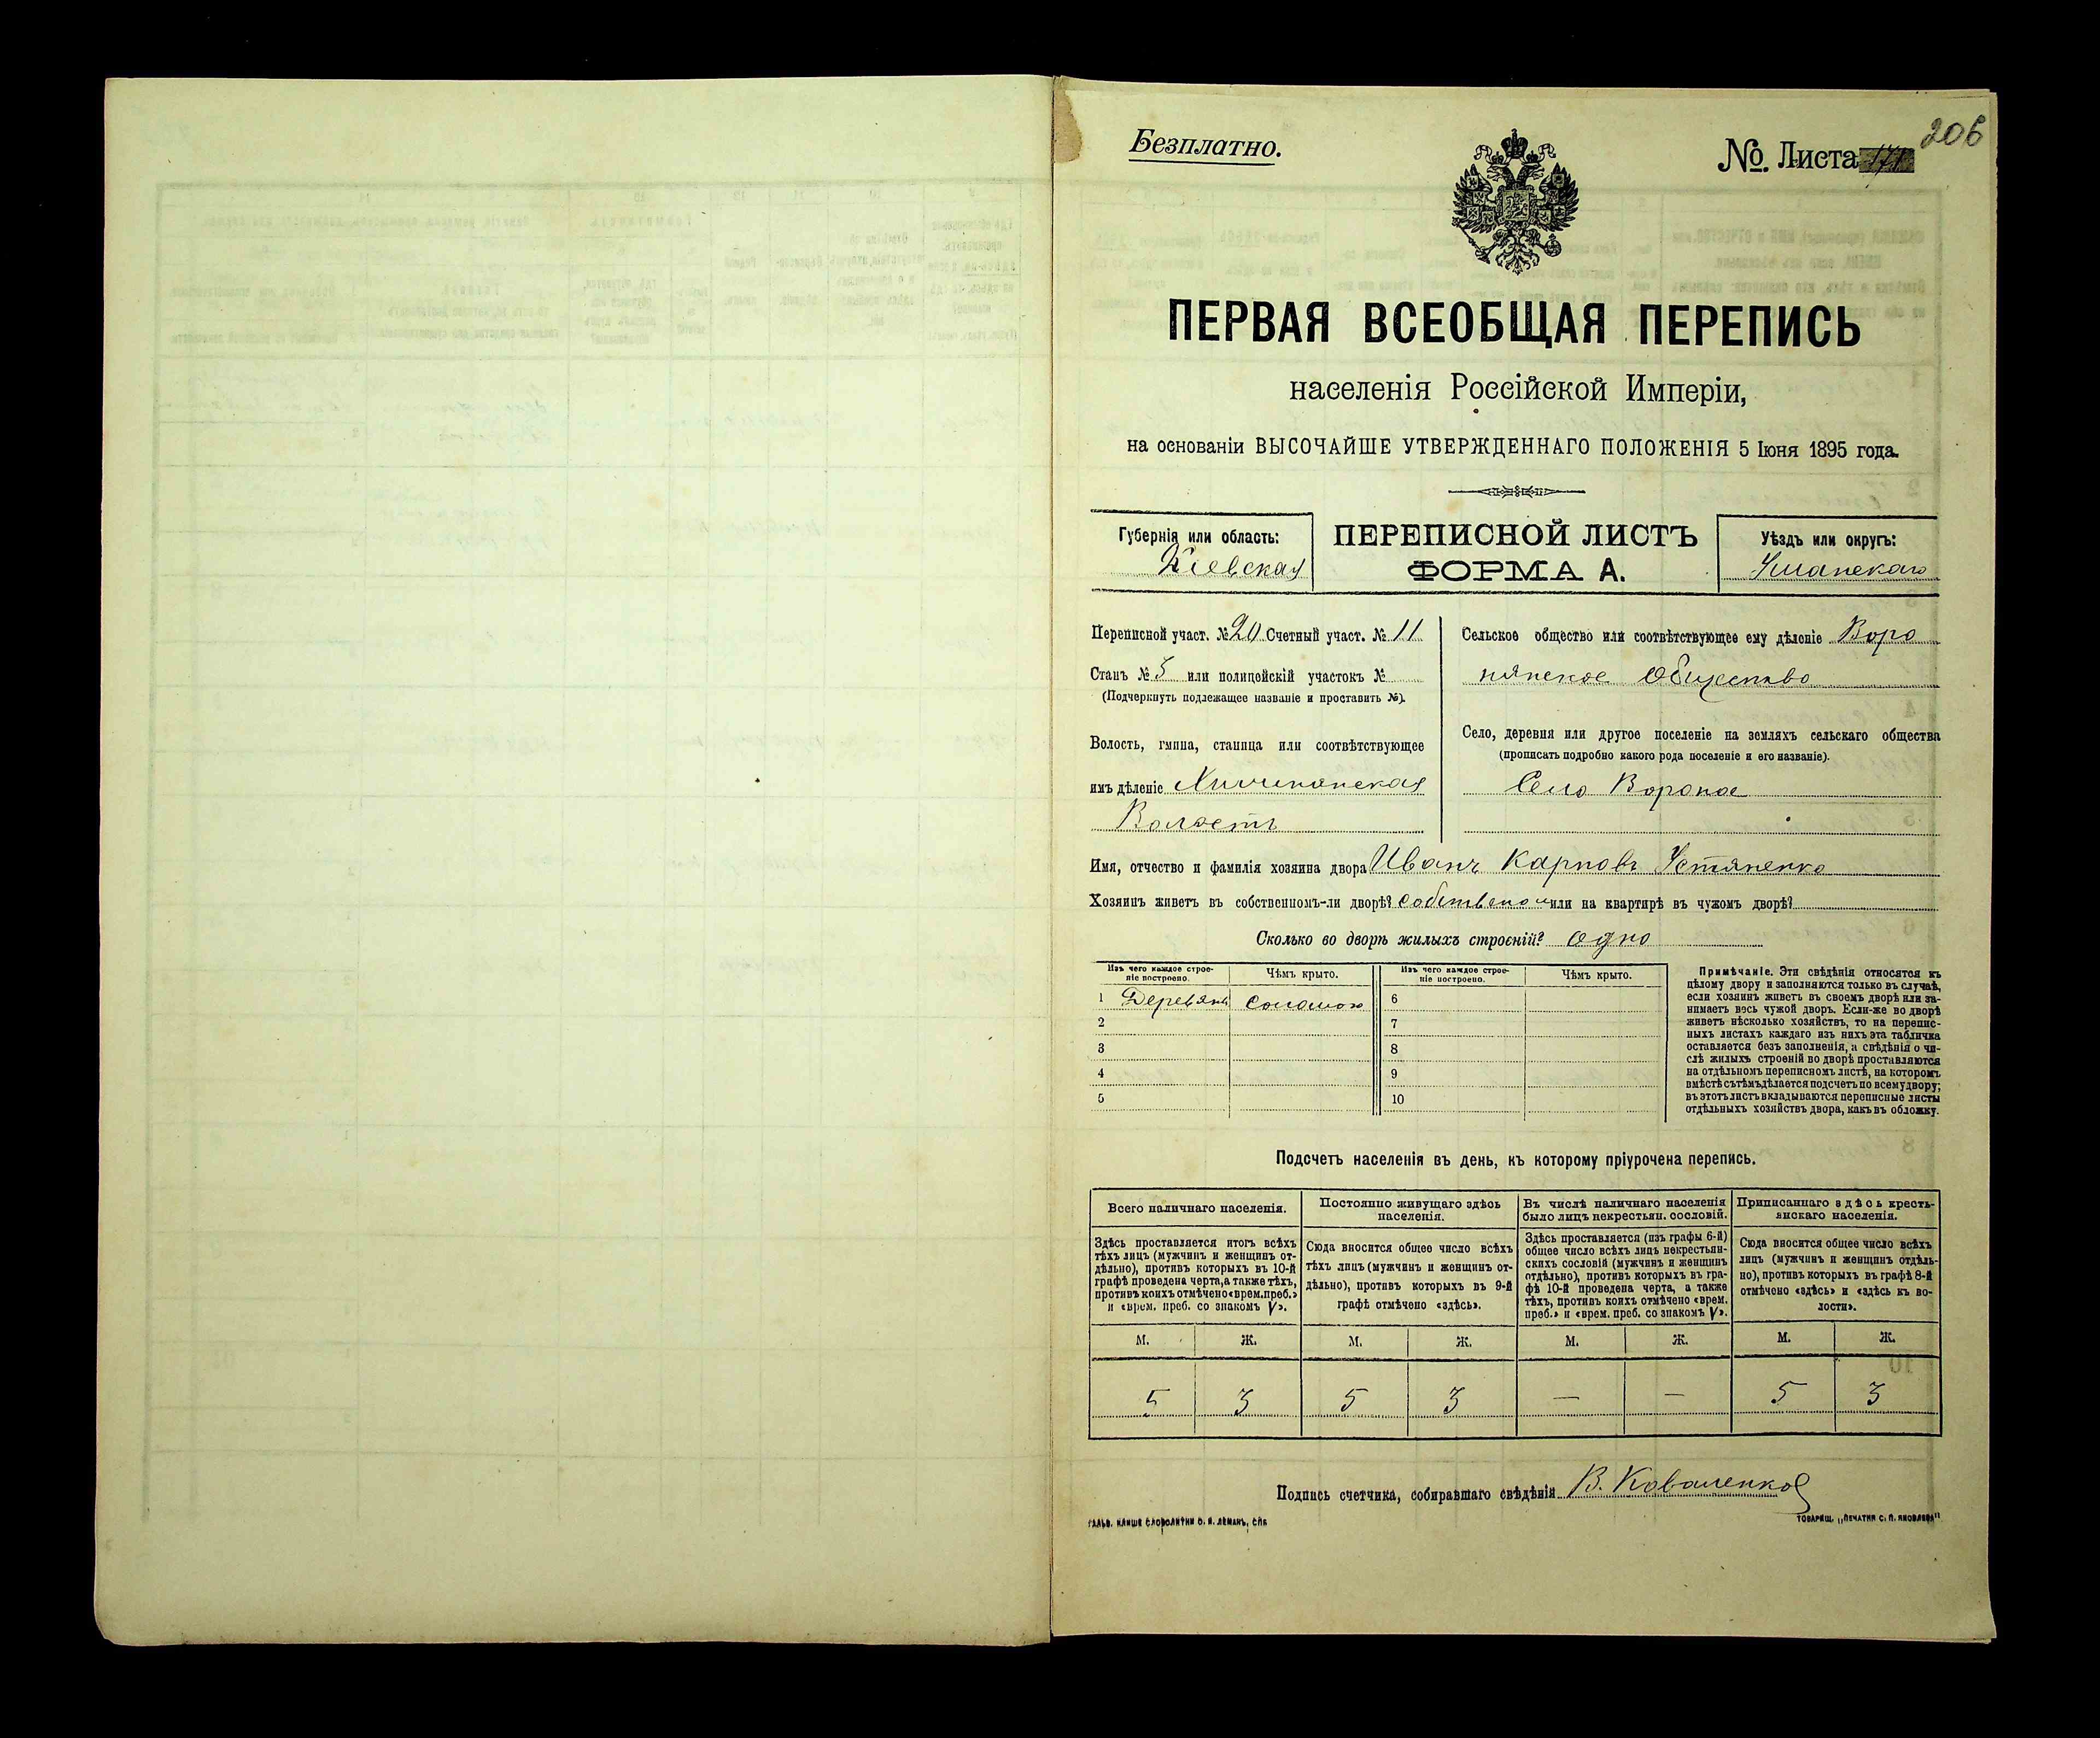 206
Безплатно.
№ Листа 171
ПЕРВАЯ ВСЕОБЩАЯ ПЕРЕПИСЬ
населенія Россійской Имперіи,
на основаніи ВЫСОЧАЙШЕ УТВЕРЖДЕННАГО ПОЛОЖЕНІЯ 5 Іюня 1895 года.
Губернія или область:
Кіевская
ПЕРЕПИСНОЙ ЛИСТЪ
ФОРМА А.
Уѣздъ или округъ:
Уманскаго
Переписной участ. № 20 Счетный участ. № 11
Станъ № 5 или полицейскій участокъ №
(Подчеркнуть подлежащее названіе и проставить №).
Волость, гмина, станица или соотвѣтствующее
имъ дѣленіе
Волость
Сельское общество или соотвѣтствующее ему дѣленіе Воро
нянское Общество
Село, деревня или другое поселеніе на земляхъ сельскаго общества
(прописать подробно какого рода поселеніе и его названіе).
Село Вороное
Имя, отчество и фамилія хозяина двора Иванъ Карповъ Устяненко
Хозяинъ живетъ въ собственномъ-ли дворѣ? собственом или на квартирѣ въ чужомъ дворѣ?
Сколько во дворѣ жилыхъ строеній? одно
Изъ чего каждое строе-
ніе построено.
Чѣмъ крыто.
Изъ чего каждое строе-
ніе построено.
Чѣмъ крыто.
1 Деревян соломою 6
2 7
3 8
4 9
5 10
Примѣчаніе. Эти свѣдѣнія относятся къ
цѣлому двору и заполняются только въ случаѣ,
если хозяинъ живетъ въ своемъ дворѣ или за-
нимаетъ весь чужой дворъ. Если-же во дворѣ
живетъ нѣсколько хозяйствъ, то на перепис-
ныхъ листахъ каждаго изъ нихъ эта табличка
оставляется безъ заполненія, а свѣдѣнія о чи-
слѣ жилыхъ строеній во дворѣ проставляются
на отдѣльномъ переписномъ листѣ, на которомъ
вмѣстѣ съ тѣмъ дѣлается подсчетъ по всему двору;
въ этотъ листъ вкладываются переписные листы
отдѣльныхъ хозяйствъ двора, какъ въ обложку.
Подсчетъ населенія въ день, къ которому пріурочена перепись.
Всего наличнаго населенія.
Здѣсь проставляется итогъ всѣхъ
тѣхъ лицъ (мужчинъ и женщинъ от-
дѣльно), противъ которыхъ въ 10-й
графѣ проведена черта, а также тѣхъ,
противъ коихъ отмѣчено «врем. преб.»
и «врем. преб. со знакомъ V».
Постоянно живущаго здѣсь
населенія.
Сюда вносится общее число всѣхъ
тѣхъ лицъ (мужчинъ и женщинъ от-
дѣльно), противъ которыхъ въ 9-й
графѣ отмѣчено «здѣсь».
Въ числѣ наличнаго населенія
было лицъ некрестьян. сословій.
Здѣсь проставляется (изъ графы 6-й)
общее число всѣхъ лицъ некрестьян-
скихъ сословій (мужчинъ и женщинъ
отдѣльно), противъ которыхъ въ гра-
фѣ 10-й проведена черта, а также
тѣхъ, противъ коихъ отмѣчено «врем.
преб.» и «врем. преб. со знакомъ V».
Приписаннаго здѣсь кресть-
янскаго населенія.
Сюда вносится общее число всѣхъ
лицъ (мужчинъ и женщинъ отдѣль-
но), противъ которыхъ въ графѣ 8-й
отмѣчено «здѣсь» и «здѣсь къ во-
лости».
М. Ж. М. Ж. М. Ж. М. Ж.
5 3 5 3 — — 5 3
Подпись счетчика, собиравшаго свѣдѣнія В. Коваленко
ГАЛЬВ. КЛИШЕ СЛОВОЛИТНИ О. И. ЛЕМАНЪ, СПБ
ТОВАРИЩ. „ПЕЧАТНЯ С. П. ЯКОВЛЕВА"